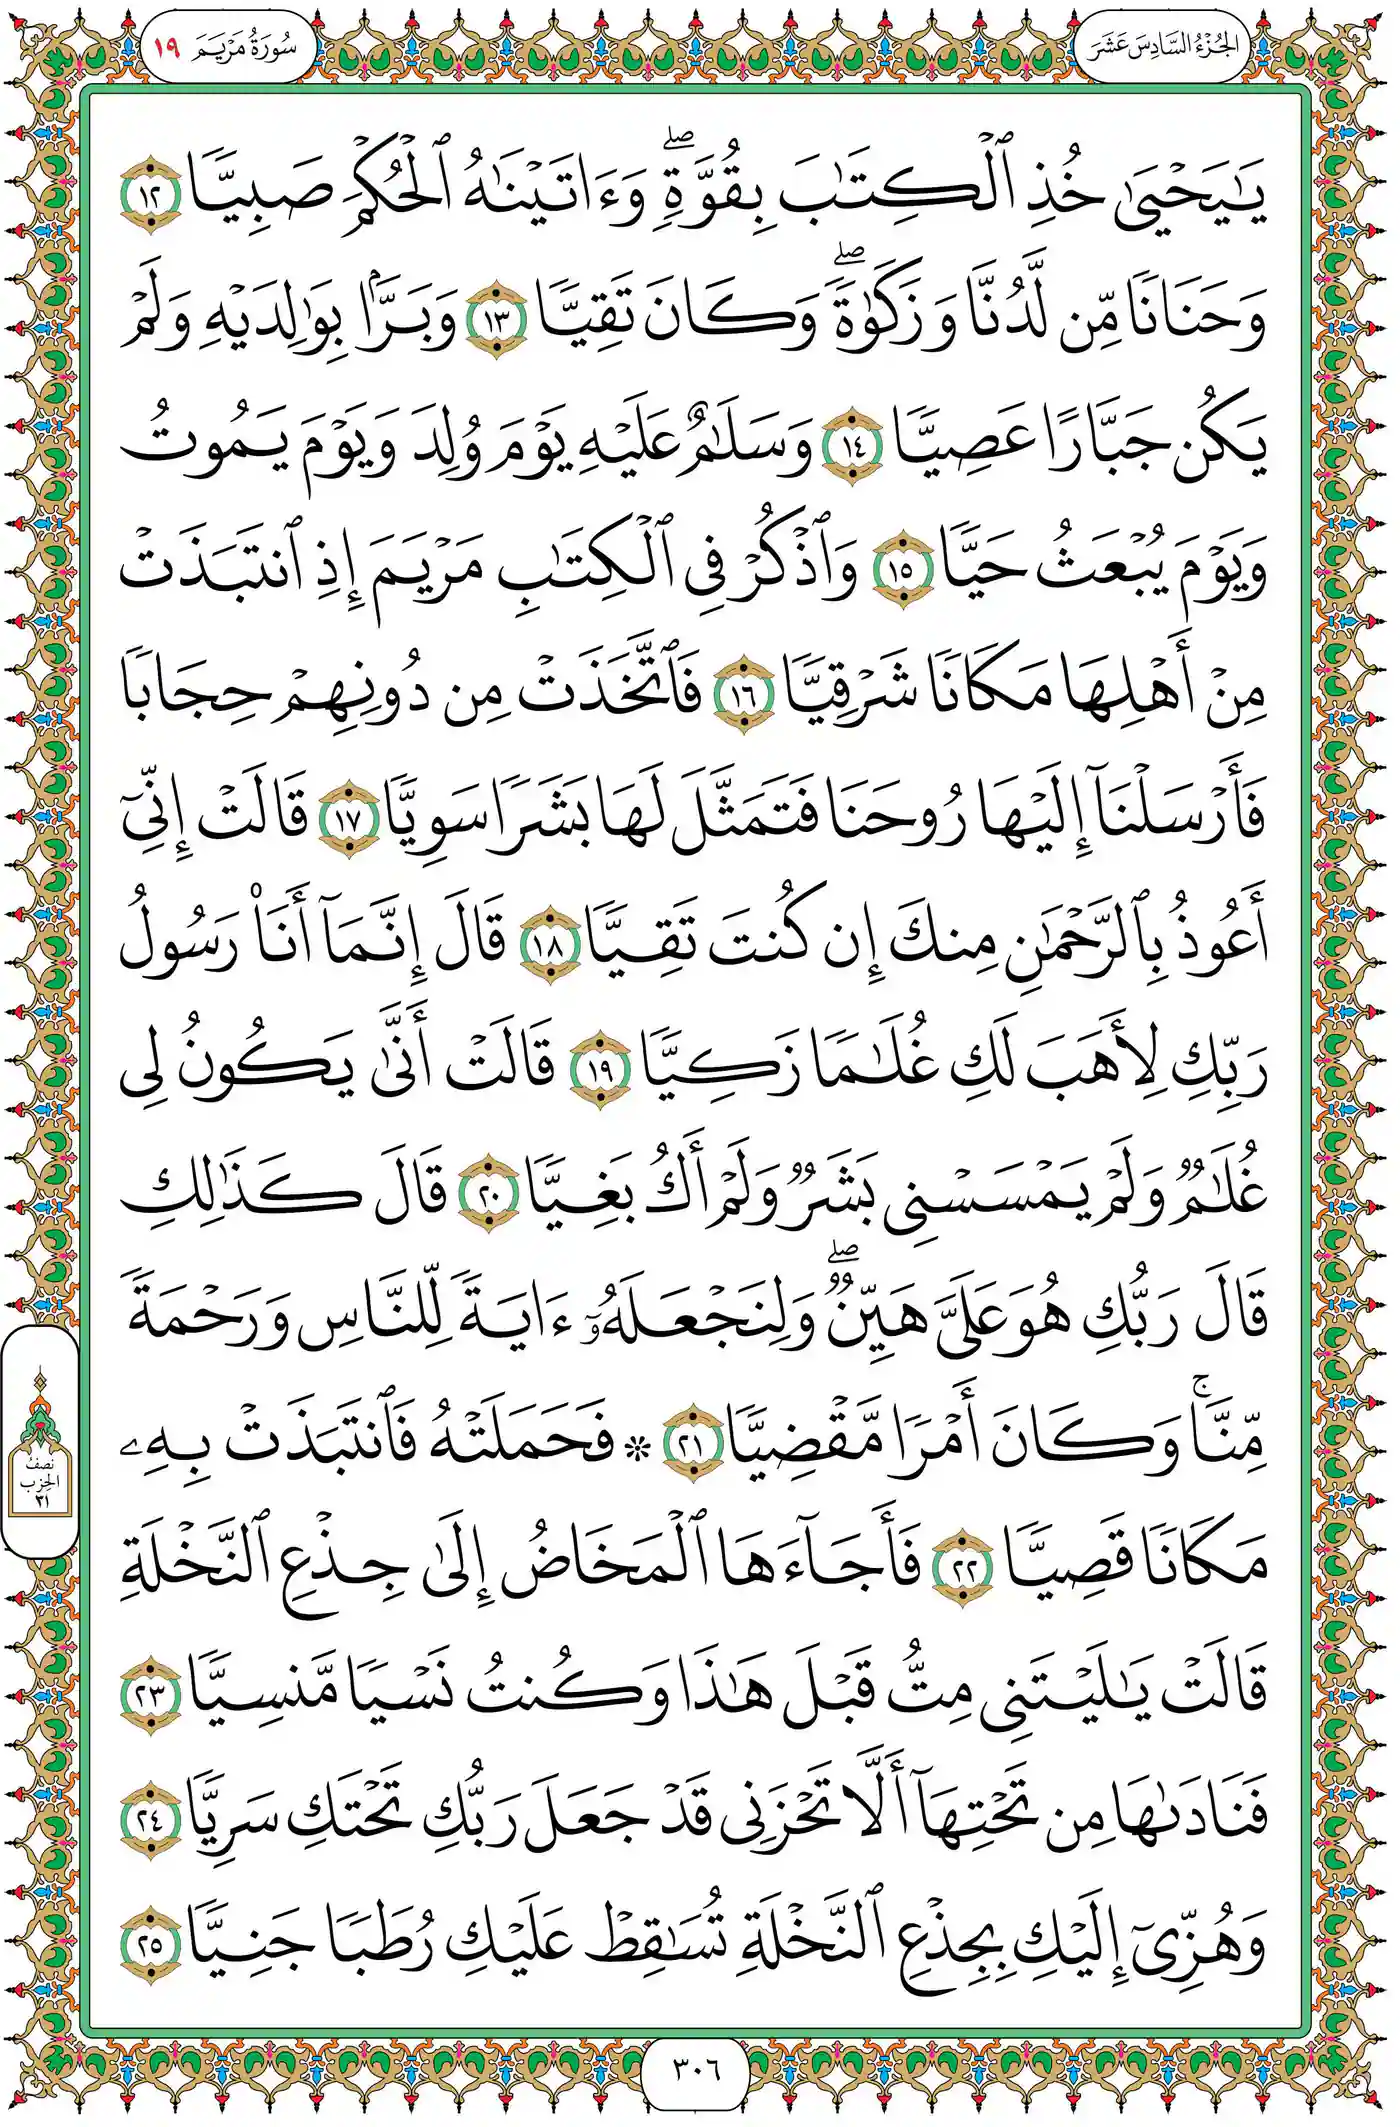 الجُزْءُ السَّادِسَ عَشَرَ
سُورَةُ مَرْيَمَ ١٩
يَٰيَحْيَىٰ خُذِ ٱلْكِتَٰبَ بِقُوَّةٍۖ وَءَاتَيْنَٰهُ ٱلْحُكْمَ صَبِيًّا ١٢
وَحَنَانًا مِّن لَّدُنَّا وَزَكَوٰةًۖ وَكَانَ تَقِيًّا ١٣ وَبَرًّۢا بِوَٰلِدَيْهِ وَلَمْ
يَكُن جَبَّارًا عَصِيًّا ١٤ وَسَلَٰمٌ عَلَيْهِ يَوْمَ وُلِدَ وَيَوْمَ يَمُوتُ
وَيَوْمَ يُبْعَثُ حَيًّا ١٥ وَٱذْكُرْ فِي ٱلْكِتَٰبِ مَرْيَمَ إِذِ ٱنتَبَذَتْ
مِنْ أَهْلِهَا مَكَانًا شَرْقِيًّا ١٦ فَٱتَّخَذَتْ مِن دُونِهِمْ حِجَابًا
فَأَرْسَلْنَآ إِلَيْهَا رُوحَنَا فَتَمَثَّلَ لَهَا بَشَرًا سَوِيًّا ١٧ قَالَتْ إِنِّيٓ
أَعُوذُ بِٱلرَّحْمَٰنِ مِنكَ إِن كُنتَ تَقِيًّا ١٨ قَالَ إِنَّمَآ أَنَا۠ رَسُولُ
رَبِّكِ لِأَهَبَ لَكِ غُلَٰمًا زَكِيًّا ١٩ قَالَتْ أَنَّىٰ يَكُونُ لِي
غُلَٰمٌ وَلَمْ يَمْسَسْنِي بَشَرٌ وَلَمْ أَكُ بَغِيًّا ٢٠ قَالَ كَذَٰلِكِ
قَالَ رَبُّكِ هُوَ عَلَيَّ هَيِّنٌۖ وَلِنَجْعَلَهُۥٓ ءَايَةً لِّلنَّاسِ وَرَحْمَةً
مِّنَّاۚ وَكَانَ أَمْرًا مَّقْضِيًّا ٢١ * فَحَمَلَتْهُ فَٱنتَبَذَتْ بِهِۦ
مَكَانًا قَصِيًّا ٢٢ فَأَجَآءَهَا ٱلْمَخَاضُ إِلَىٰ جِذْعِ ٱلنَّخْلَةِ
قَالَتْ يَٰلَيْتَنِي مِتُّ قَبْلَ هَٰذَا وَكُنتُ نَسْيًا مَّنسِيًّا ٢٣
فَنَادَىٰهَا مِن تَحْتِهَآ أَلَّا تَحْزَنِي قَدْ جَعَلَ رَبُّكِ تَحْتَكِ سَرِيًّا ٢٤
وَهُزِّيٓ إِلَيْكِ بِجِذْعِ ٱلنَّخْلَةِ تُسَٰقِطْ عَلَيْكِ رُطَبًا جَنِيًّا ٢٥
نصف
الحزب
٣١
٣٠٦